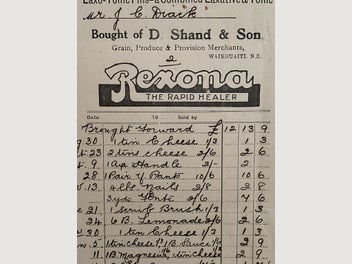 Laxo-Tonic Pills-a Combined Laxative & Tonic
Mr J C Drack
Bought of D. Shand & Son,
Grain, Produce & Provision Merchants,
WAIKOUAITI, N.Z.
2
Rexona
THE RAPID HEALER
Date 19 Sold by
Brought Forward £ 12 13 9
g 30 1 tin Cheese 1/3 1 3
t 23 2 tins cheese 2/6 2 6
t. 9 1 axe Handle 2/- 2 -
28 1 Pair of Pants 10/6 10 6
v. 13 4 lbs Nails 2/8 2 8
3 yds 4 6
c 21 1 Scrub Brush 1/3 1 3
24 6 B. Lemonade 2/6 2 6
30 1 tin Cheese 1/3 1 3
n. 5 1 tin cheese 1/3 1 B. Sauce 1/6 2 9
11 1 B. Magnesia, 1/6 1 tin cheese 2 9